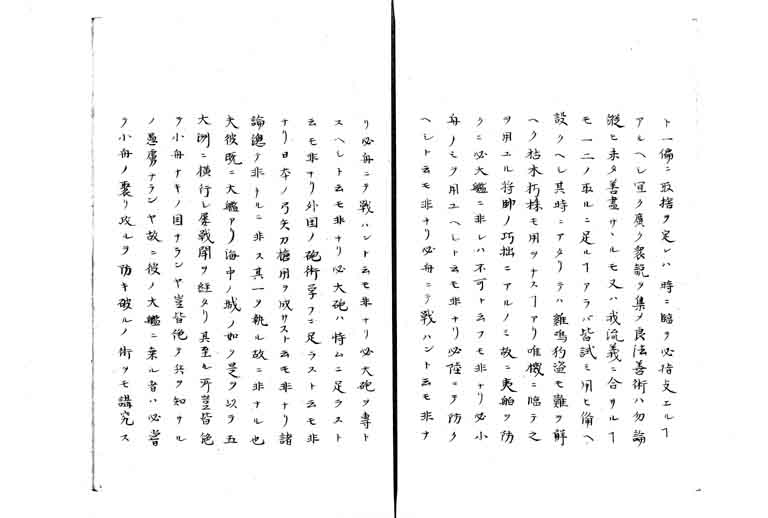 ト一偏ニ取捨ヲ定レハ時ニ臨ヲ必指支エルヿ
アルヘレ宜ク廣ク衆説ヲ集メ良法善術ハ勿論
縦ヒ未タ善盡サヽルモ又ハ我流義ニ合サルヿ
モ一二ノ取ルニ足ルヿアラバ皆試ミ用ヒ備ヘ
設クヘレ其時ニアタリテハ雞鳴狗盗モ難ヲ解
ヘク枯木朽株モ用ヲナスヿアリ唯機ニ臨テ之
ヲ用エル将帥ノ巧拙ニアルノミ故ニ夷舶ヲ防
クニ必大艦ニ非レハ不可ト云フモ非ナリ必小
舟ノミヲ用ユヘレト云モ非ナリ必陸ニヲ防ク
ヘレト云モ非ナリ必舟ニテ戦ハント云モ非ナ
リ必舟ニヲ戦ハント云モ非ナリ必大砲ヲ専ト
スヘレト云モ非ナリ必大砲ハ恃ムニ足ラスト
云モ非ナリ外国ノ砲術学フニ足ラスト云モ非
ナリ日本ノ弓矢刀槍用ヲ成サスト云モ非ナリ諸
論總テ非ナルニ非ス其一ヲ執ル故ニ非ナル也
夫彼既ニ大艦アリ海中ノ城ノ如ク是ヲ以ヲ五
大洲ニ横行レ屡戦闘ヲ経タリ其至ル所豈皆絶
ヲ小舟ナキノ国ナランヤ豈皆絶ヲ兵ヲ知サル
ノ愚虜ナランヤ故ニ彼ノ大艦ニ乗ル者ハ必當
ヲ小舟ノ聚リ攻ルヲ防キ破ルノ術ヲモ講究ス